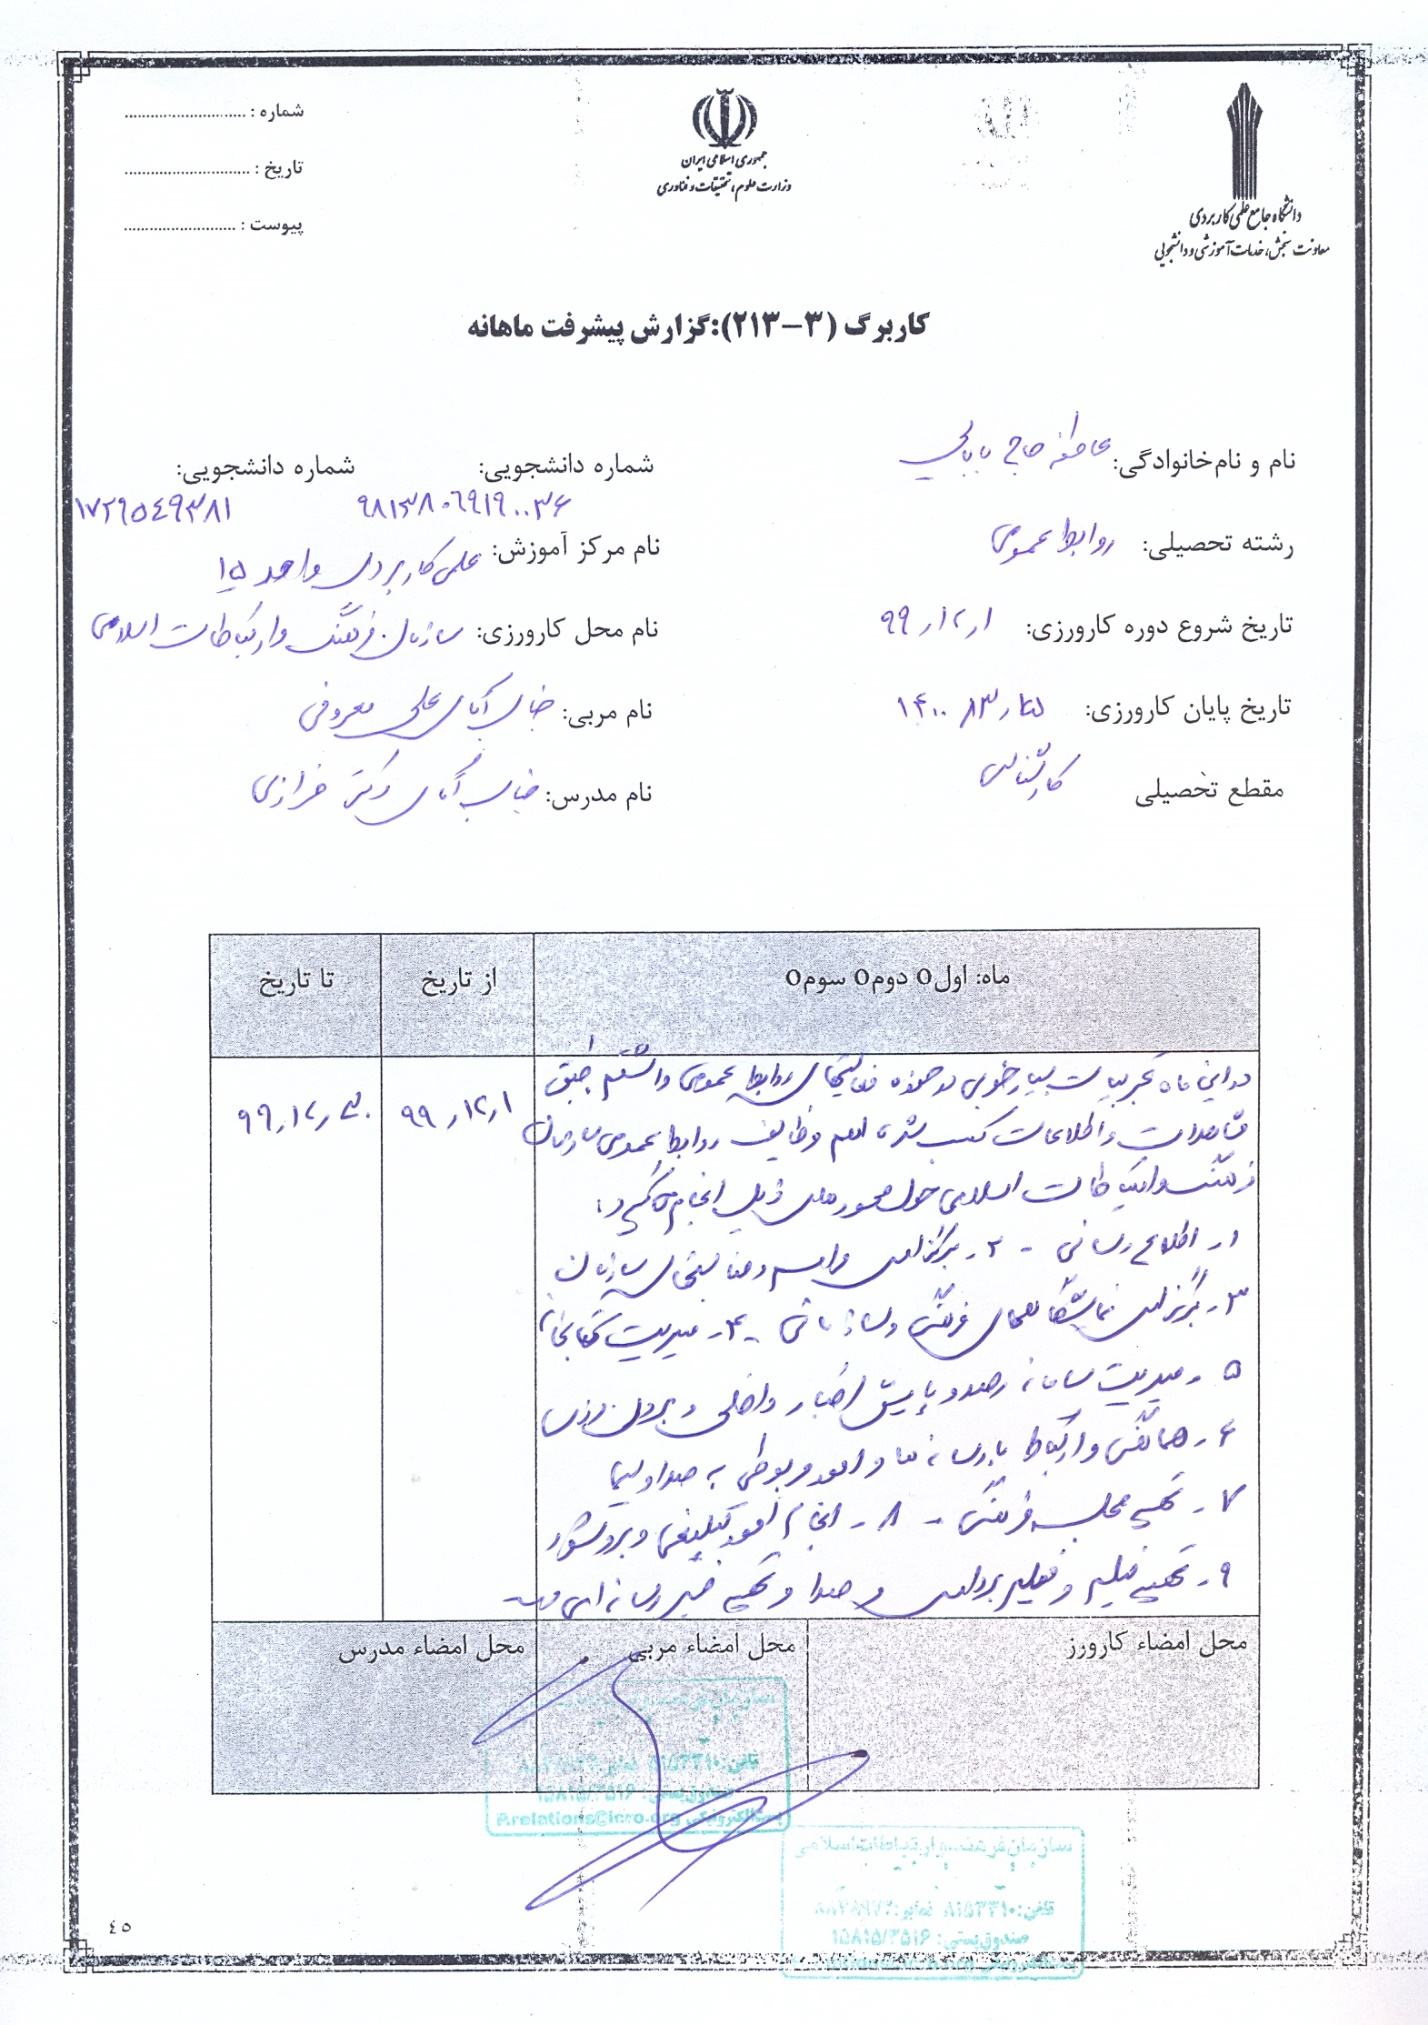 شماره : ............................
تاریخ : ............................
پیوست : ............................
جمهوری اسلامی ایران
وزارت علوم، تحقیقات و فناوری
دانشگاه جامع علمی کاربردی
معاونت سنجش، خدمات آموزشی و دانشجویی
کاربرگ (۳–۲۱۳):گزارش پیشرفت ماهانه
نام و نام‌خانوادگی: عاطفه حاج بابایی
شماره دانشجویی: شماره دانشجویی:
رشته تحصیلی: روابط عمومی
نام مرکز آموزش: علمی کاربردی واحد ۱۵
تاریخ شروع دوره کارورزی: ۹۹,۱۲,۱
نام محل کارورزی: سازمان فرهنگ و ارتباطات اسلامی
تاریخ پایان کارورزی:
نام مربی: جناب آقای علی معروفی
مقطع تحصیلی کارشناسی
نام مدرس: جناب آقای دکتر فرازی
ماه: اولO دومO سومO
از تاریخ
تا تاریخ
در این ماه تجربیات بسیار خوبی در حوزه فعالیتهای روابط عمومی داشتم طبق
مشاهدات و اطلاعات کسب شده اهم وظایف روابط عمومی سازمان
فرهنگ و ارتباطات اسلامی حول محورهای ذیل انجام می گیرد:
۱- اطلاع رسانی - ۲- برگزاری مراسم و مناسبتهای سازمان
۳- برگزاری نمایشگاههای فرهنگی و سازمانی - ۴- مدیریت کتابخانه
۵ - مدیریت سامانه رصد و پایش اخبار داخلی و برون مرزی
۶- هماهنگی و ارتباط با رسانه ها و امور مربوطی به صدا و سیما
۷- تهیه مجله فرهنگی - ۸- انجام امور تبلیغی و بروشور
۹- تهیه فیلم و فیلم برداری و صدا و تهیه خبر رسانه ای و...
۹۹,۱۲,۱
۹۹,۱۲,۳۰
محل امضاء کارورز
محل امضاء مربی
محل امضاء مدرس
صندوق پستی: ۱۵۸۱۵/۳۵۱۶
پست الکترونیکی P.relations@icro.org
سازمان فرهنگ و ارتباطات اسلامی
تلفن: ۸۱۵۳۳۱۰
صندوق پستی: ۱۵۸۱۵/۳۵۱۶
٤٥